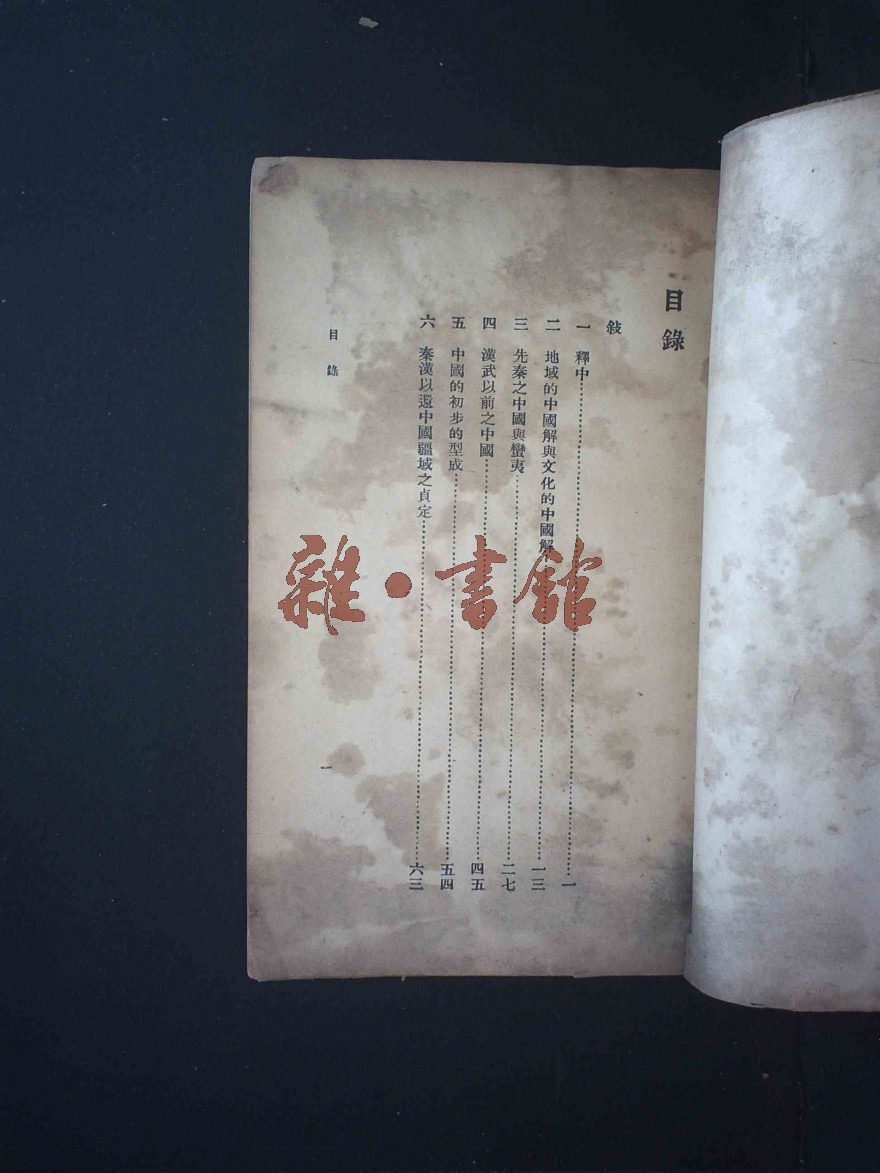 目錄
敍
一 釋中……一
二 地域的中國解與文化的中國解……一三
三 先秦之中國與蠻夷……二七
四 漢武以前之中國……四五
五 中國的初步的型成……五四
六 秦漢以還中國疆域之貞定……六三
目錄 一
雜·書館